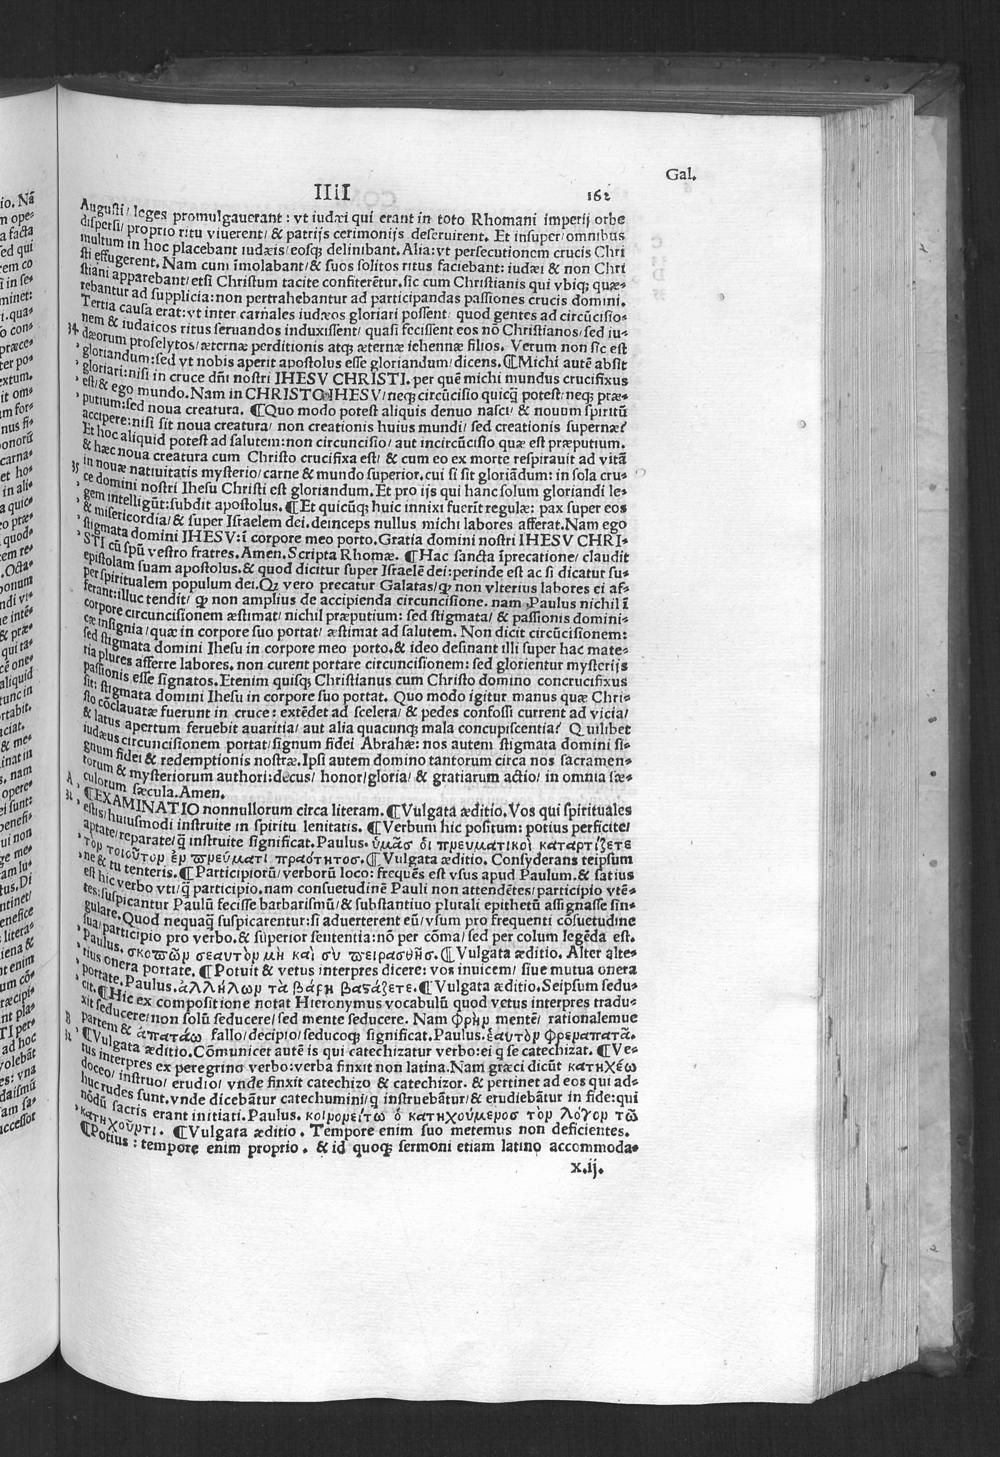 Gal.
IIII 162
Augusti/ leges promulgauerant : vt iudæi qui erant in toto Rhomani imperij orbe
dispersi/ proprio ritu viuerent/ & patrijs cerimonijs deseruirent. Et insuper/ omnibus
multum in hoc placebant iudæis/ eosq; delinibant. Alia: vt persecutionem crucis Chri
sti effugerent. Nam cum īmolabant/ & suos solitos ritus faciebant: iudæi & non Chri
stiani apparebant/ etsi Christum tacite confiterētur. sic cum Christianis qui vbiq; quæ-
rebantur ad supplicia: non pertrahebantur ad participandas passiones crucis domini.
Tertia causa erat: vt inter carnales iudæos gloriari possent/ quod gentes ad circūcisio-
nem & iudaicos ritus seruandos induxissent/ quasi fecissent eos nō Christianos/ sed iu-
34. dæorum proselytos/ æternæ perditionis atq; æternæ iehennæ filios. Verum non sic est
gloriandum: sed vt nobis aperit apostolus esse gloriandum/ dicens. ¶Michi autē absit
gloriari: nisi in cruce dñi nostri IHESV CHRISTI. per quē michi mundus crucifixus
est/ & ego mundo. Nam in CHRISTO IHESV/ neq; circūcisio quicq̄ potest/ neq; præ-
putium: sed noua creatura. ¶Quo modo potest aliquis denuo nasci/ & nouum spiritū
accipere: nisi sit noua creatura/ non creationis huius mundi/ sed creationis supernæ?
Et hoc aliquid potest ad salutem: non circuncisio/ aut incircūcisio quæ est præputium.
& hæc noua creatura cum Christo crucifixa est/ & cum eo ex morte respirauit ad vitā
35 in nouæ natiuitatis mysterio/ carne & mundo superior. cui si sit gloriādum: in sola cru-
ce domini nostri Ihesu Christi est gloriandum. Et pro ijs qui hanc solum gloriandi le-
gem intelligūt: subdit apostolus. ¶Et quicūq; huic innixi fuerit regulæ: pax super eos
& misericordia/ & super Israelem dei. deinceps nullus michi labores afferat. Nam ego
stigmata domini IHESV: ī corpore meo porto. Gratia domini nostri IHESV CHRI-
STI cū spū vestro fratres. Amen. Scripta Rhomæ. ¶Hac sancta īprecatione/ claudit
epistolam suam apostolus. & quod dicitur super Israelē dei: perinde est ac si dicatur su-
per spiritualem populum dei. Qꝫ vero precatur Galatas/ ꝙ non vlterius labores ei af-
ferant: illuc tendit/ ꝙ non amplius de accipienda circuncisione. nam Paulus nichil ī
corpore circuncisionem æstimat/ nichil præputium: sed stigmata/ & passionis domini-
cæ insignia/ quæ in corpore suo portat/ æstimat ad salutem. Non dicit circūcisionem:
sed stigmata domini Ihesu in corpore meo porto. & ideo desinant illi super hac mate-
ria plures afferre labores. non curent portare circuncisionem: sed glorientur mysterijs
passionis esse signatos. Etenim quisq; Christianus cum Christo domino concrucifixus
sit: stigmata domini Ihesu in corpore suo portat. Quo modo igitur manus quæ Chri-
sto cōclauatæ fuerunt in cruce: extēdet ad scelera/ & pedes confossi current ad vicia/
& latus apertum feruebit auaritia/ aut alia quacunq; mala concupiscentia? Quilibet
iudæus circuncisionem portat/ signum fidei Abrahæ: nos autem stigmata domini si-
gnum fidei & redemptionis nostræ. Ipsi autem domino tantorum circa nos sacramen-
torum & mysteriorum authori: decus/ honor/ gloria/ & gratiarum actio/ in omnia sæ-
A culorum sæcula. Amen.
¶EXAMINATIO nonnullorum circa literam. ¶Vulgata æditio. Vos qui spirituales
estis/ huiusmodi instruite in spiritu lenitatis. ¶Verbum hic positum: potius perficite/
aptate/ reparate/ q̄ instruite significat. Paulus. ὑμᾶσ ὁι πνευματικοὶ καταρτίζετε
τὸν τοιοῦτον ἐν πνεύματι πραότητοσ. ¶ Vulgata æditio. Consyderans teipsum
ne & tu tenteris. ¶ Participiorū/ verborū loco: frequēs est vsus apud Paulum. & satius
est hic verbo vti/ q̄ participio. nam consuetudinē Pauli non attendētes/ participio vtē-
tes: suspicantur Paulū fecisse barbarismū/ & substantiuo plurali epithetū assignasse sin-
gulare. Quod nequaq̄ suspicarentur: si aduerterent eū/ vsum pro frequenti cōsuetudine
sua/ participio pro verbo. & superior sententia: nō per cōma/ sed per colum legēda est.
Paulus. σκοπῶν σεαυτὸν μὴ καὶ σὺ πειρασθῆσ. ¶Vulgata æditio. Alter alte-
rius onera portate. ¶Potuit & vetus interpres dicere: vos inuicem/ siue mutua onera
portate. Paulus. ἀλλήλων τὰ βάρη βαστάζετε. ¶Vulgata æditio. Seipsum sedu-
cit. ¶Hic ex compositione notat Hieronymus vocabulū quod vetus interpres tradu-
xit seducere/ non solū seducere/ sed mente seducere. Nam φρὴν mentē/ rationalemue
B partem & ἀπατάω fallo/ decipio/ seducoq; significat. Paulus. ἑαυτὸν φρεναπατᾶ.
¶Vulgata æditio. Cōmunicet autē is qui catechizatur verbo: ei q̄ se catechizat. ¶Ve-
tus interpres ex peregrino verbo: verba finxit non latina. Nam græci dicūt κατηχέω
doceo/ instruo/ erudio/ vnde finxit catechizo & catechizor. & pertinet ad eos qui ad-
huc rudes sunt. vnde dicebātur catechumini/ q̄ instruebātur/ & erudiebātur in fide: qui
nōdū sacris erant initiati. Paulus. κοινωνείτω ὁ κατηχούμενοσ τὸν λόγον τῶ
κατηχοῦντι. ¶Vulgata æditio. Tempore enim suo metemus non deficientes.
¶Potius : tempore enim proprio. & id quoq; sermoni etiam latino accommoda-
x.ij.